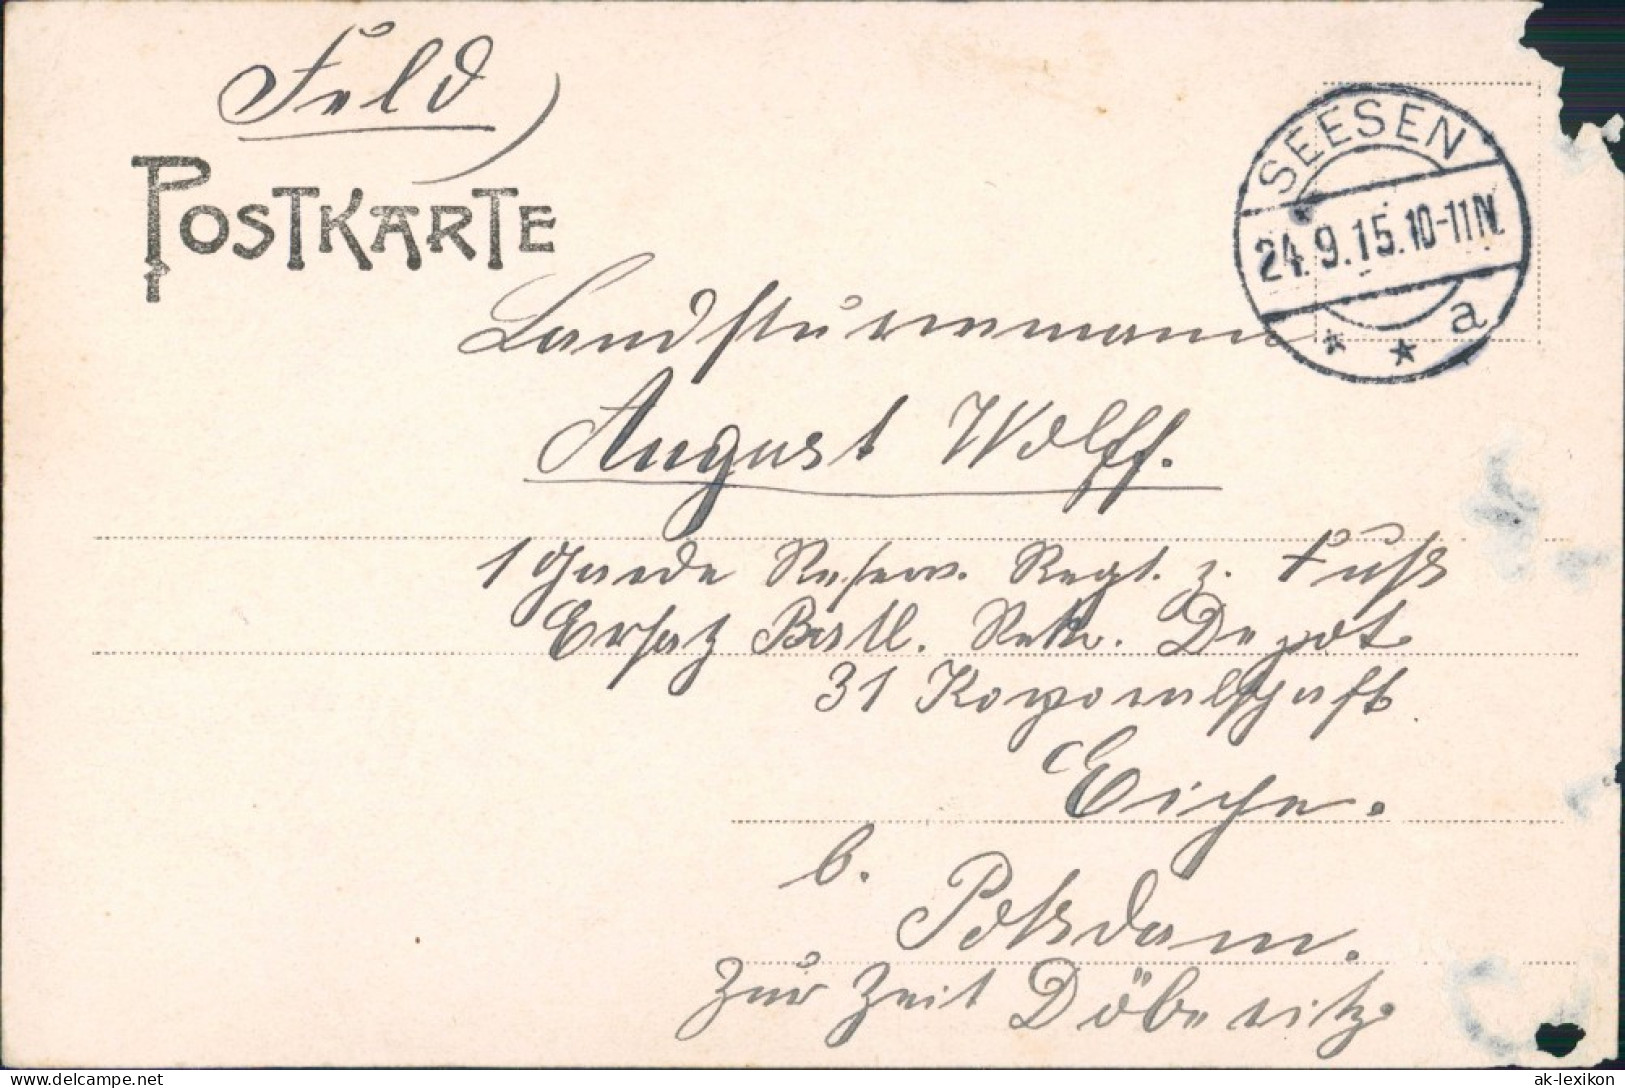 Feld
POSTKARTE
SEESEN
24.9.15.10-11N.
* * a
Landsturmmann
August Wolff.
1 Garde Reserv. Regt. z. Fuß
Ersatz Batl. Rekr. Depot
31 Korporalschaft
Eiche.
b. Potsdam.
Zur Zeit Döberitz
www.delcampe.net
ak-lexikon